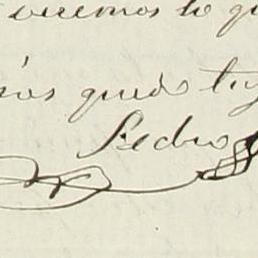 veremos lo q
quedo tuy
Pedro